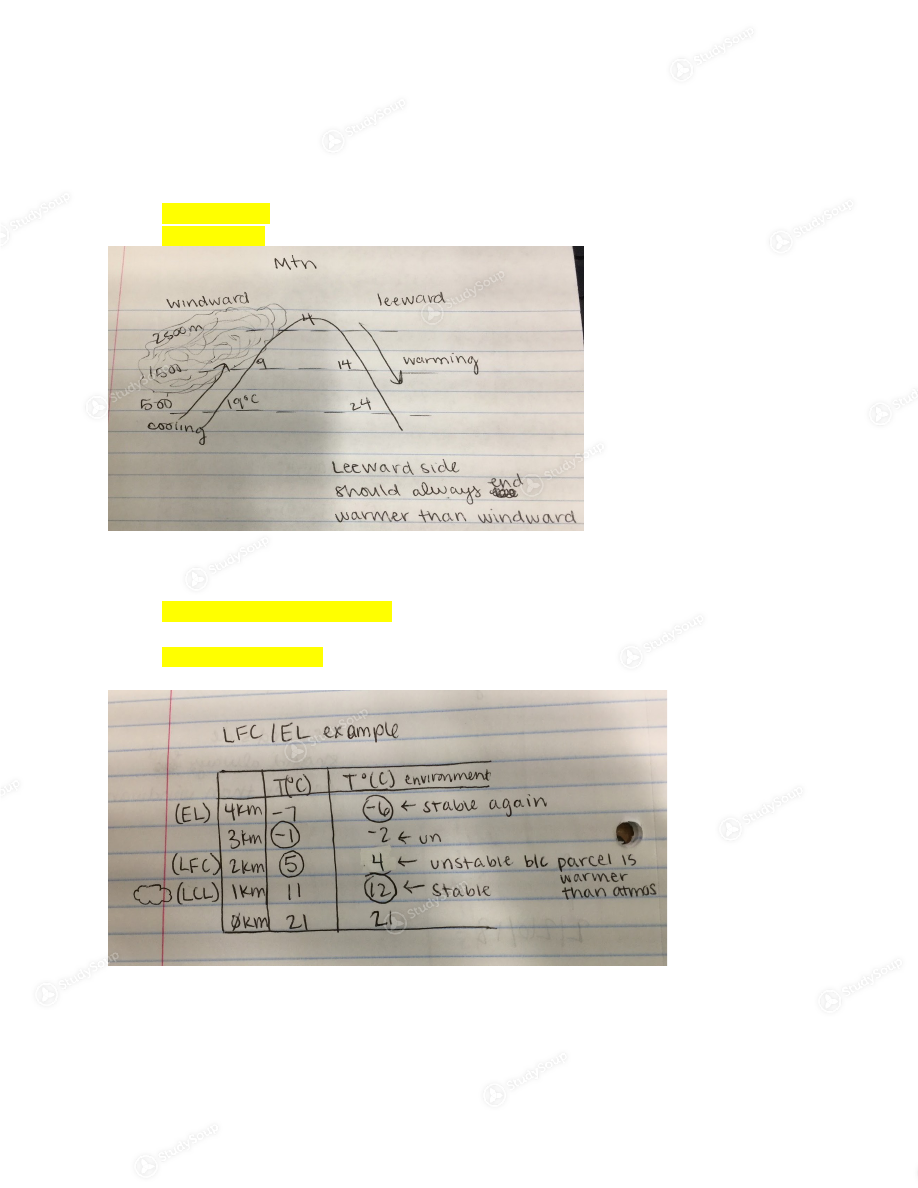 Mtn
windward leeward
2500m 4
1500 9 14 warming
500 19°C 24
cooling
Leeward side
should always end
warmer than windward
LFC/EL example
T(°C) T°(C) environment
(EL) 4km -7 -6 ← stable again
3km -1 -2 ← un
(LFC) 2km 5 4 ← unstable b/c parcel is
warmer
(LCL) 1km 11 12 ← stable than atmos
0km 21 21
StudySoup